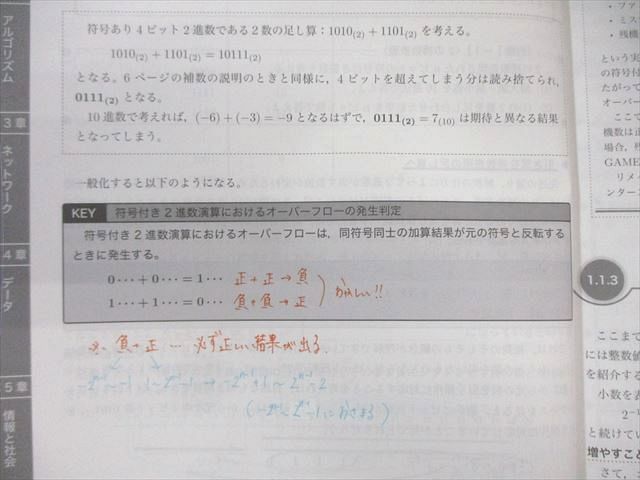 アルゴリズム
3章
ネットワーク
4章
データ
5章
情報と社会
符号あり4ビット2進数である2数の足し算：1010(2)＋1101(2) を考える。
1010(2)＋1101(2)＝10111(2)
となる。6ページの補数の説明のときと同様に，4ビットを超えてしまう分は読み捨てられ，
0111(2) となる。
10進数で考えれば，(−6)＋(−3)＝−9 となるはずで，0111(2)＝7(10) は期待と異なる結果
となってしまう。
一般化すると以下のようになる。
KEY 符号付き2進数演算におけるオーバーフローの発生判定
符号付き2進数演算におけるオーバーフローは，同符号同士の加算結果が元の符号と反転する
ときに発生する。
0…＋0…＝1… 正＋正→負
1…＋1…＝0… 負＋負→正
おかしい!!
※ 負＋正 … 必ず正しい結果が出る.
-2ⁿ⁻¹~-1 1~2ⁿ⁻¹-1 → -2ⁿ⁻¹+1~2ⁿ⁻¹-2
(-2ⁿ⁻¹~2ⁿ⁻¹-1におさまる)
・ファ
・ミス
・残機
という実
の符号付
たがって
オーバー
ここで
機数は正
場合，残
GAME
リメイ
ンターネ
1.1.3
ここまで
には整数値
を紹介する
小数を表
と続けてい
増やすこと
さて，コ